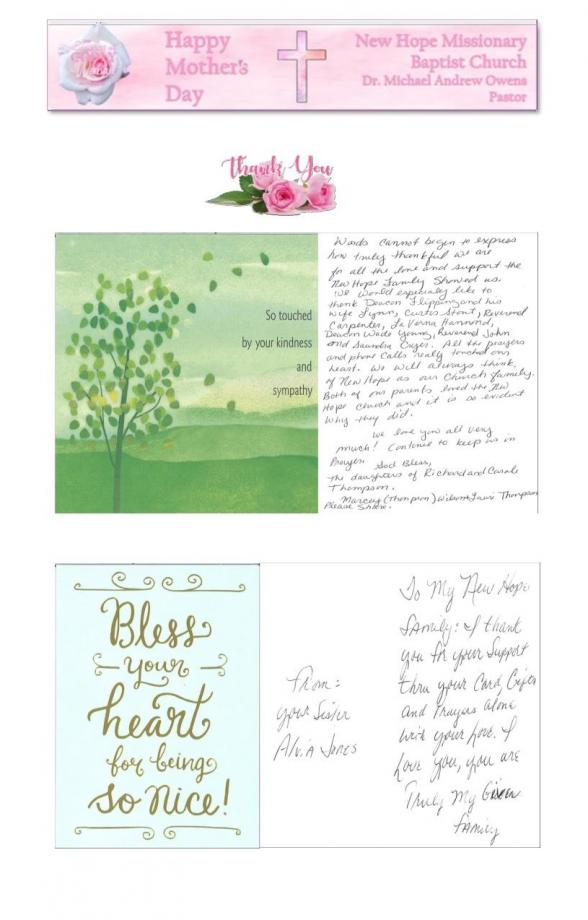 Happy
Mother's
Day
New Hope Missionary
Baptist Church
Dr. Michael Andrew Owens
Pastor
Thank You
So touched
by your kindness
and
sympathy
Words cannot begin to express
how truly thankful we are
for all the love and support the
New Hope Family Showed us.
We would especially like to
thank Deacon Flipping and his
wife Lynn, Curtis Stout, Reverend
Carpenter, LaVerna Hammond,
Deacon Wade Young, Reverend John
and Saundra . All the prayers
and phone calls really touched our
heart. We will always think
of New Hope as our Church family.
Both of our parents loved the New
Hope Church and it is so evident
why they did.
We love you all very
much! Continue to keep us in
Prayer. God Bless,
The daughters of Richard and Carole
Thompson.
(Thompson) Thompson
Please Share.
Bless
your
heart
for being
so nice!
From:
your Sister
Alvia Jones
To My New Hope
Family: I thank
you for your Support
thru your Card,
and Prayers alone
with your love. I
love you, you are
Truly My
Family